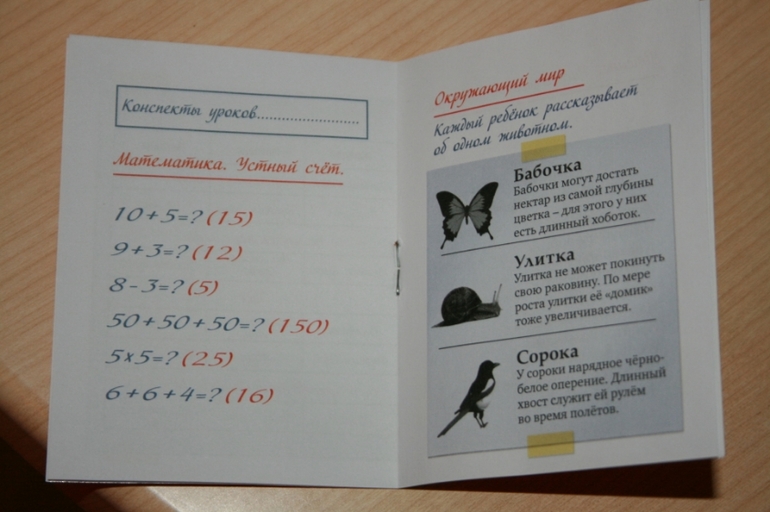 Конспекты уроков........................
Математика. Устный счёт.
10+5=? (15)
9+3=? (12)
8-3=? (5)
50+50+50=? (150)
5x5=? (25)
6+6+4=? (16)
Окружающий мир
Каждый ребёнок рассказывает
об одном животном.
Бабочка
Бабочки могут достать
нектар из самой глубины
цветка – для этого у них
есть длинный хоботок.
Улитка
Улитка не может покинуть
свою раковину. По мере
роста улитки её «домик»
тоже увеличивается.
Сорока
У сороки нарядное чёрно-
белое оперение. Длинный
хвост служит ей рулём
во время полётов.